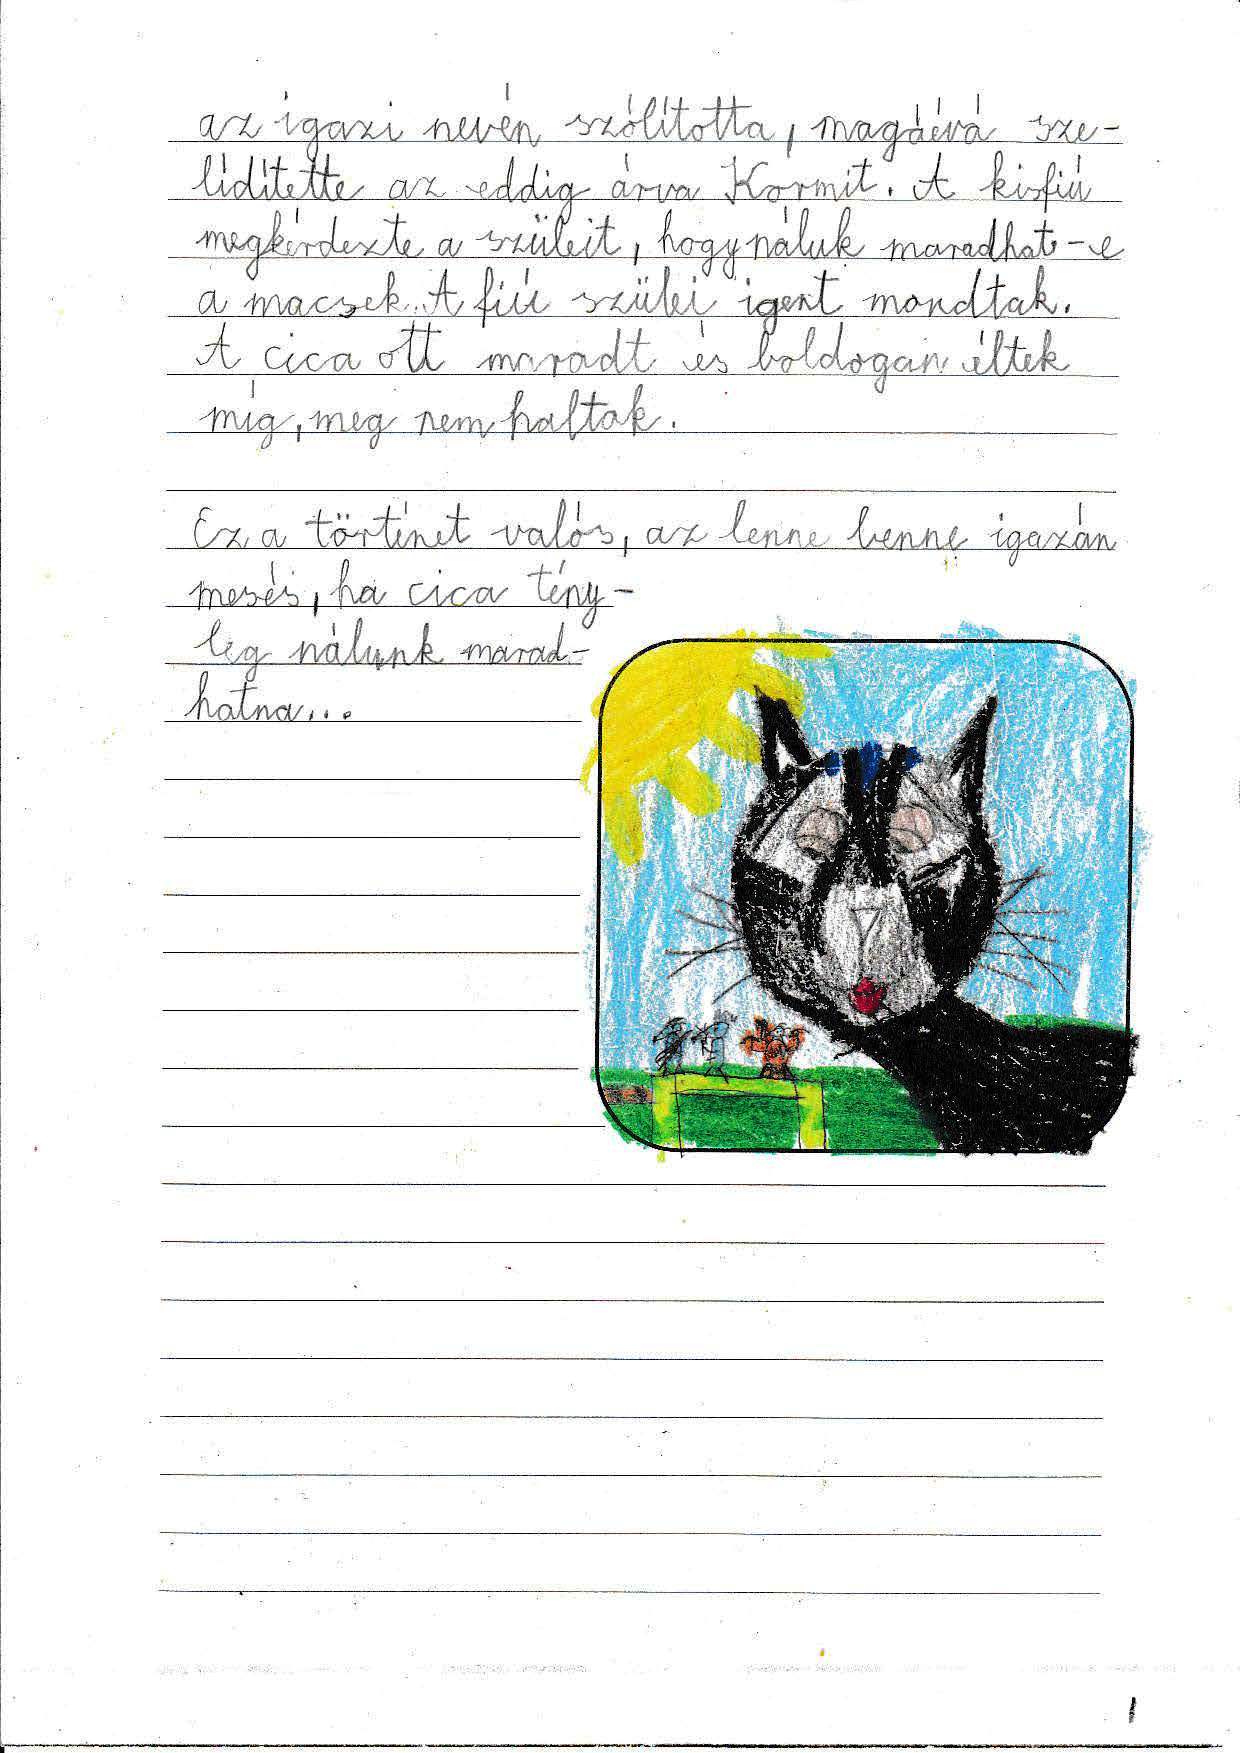 az igazi nevén szólította, magáévá sze-
lidítette az eddig árva Kormit. A kisfiú
megkérdezte a szüleit, hogy náluk maradhat-e
a macsek. A fiú szülei igent mondtak.
A cica ott maradt és boldogan éltek
míg, meg nem haltak.
Ez a történet valós, az lenne benne igazán
mesés, ha cica tény-
leg nálunk marad-
hatna...